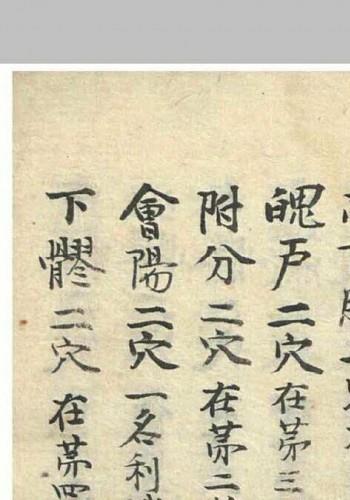 魄戸二穴在苐三
附分二穴在苐二
會陽二穴一名利
下髎二穴在苐四